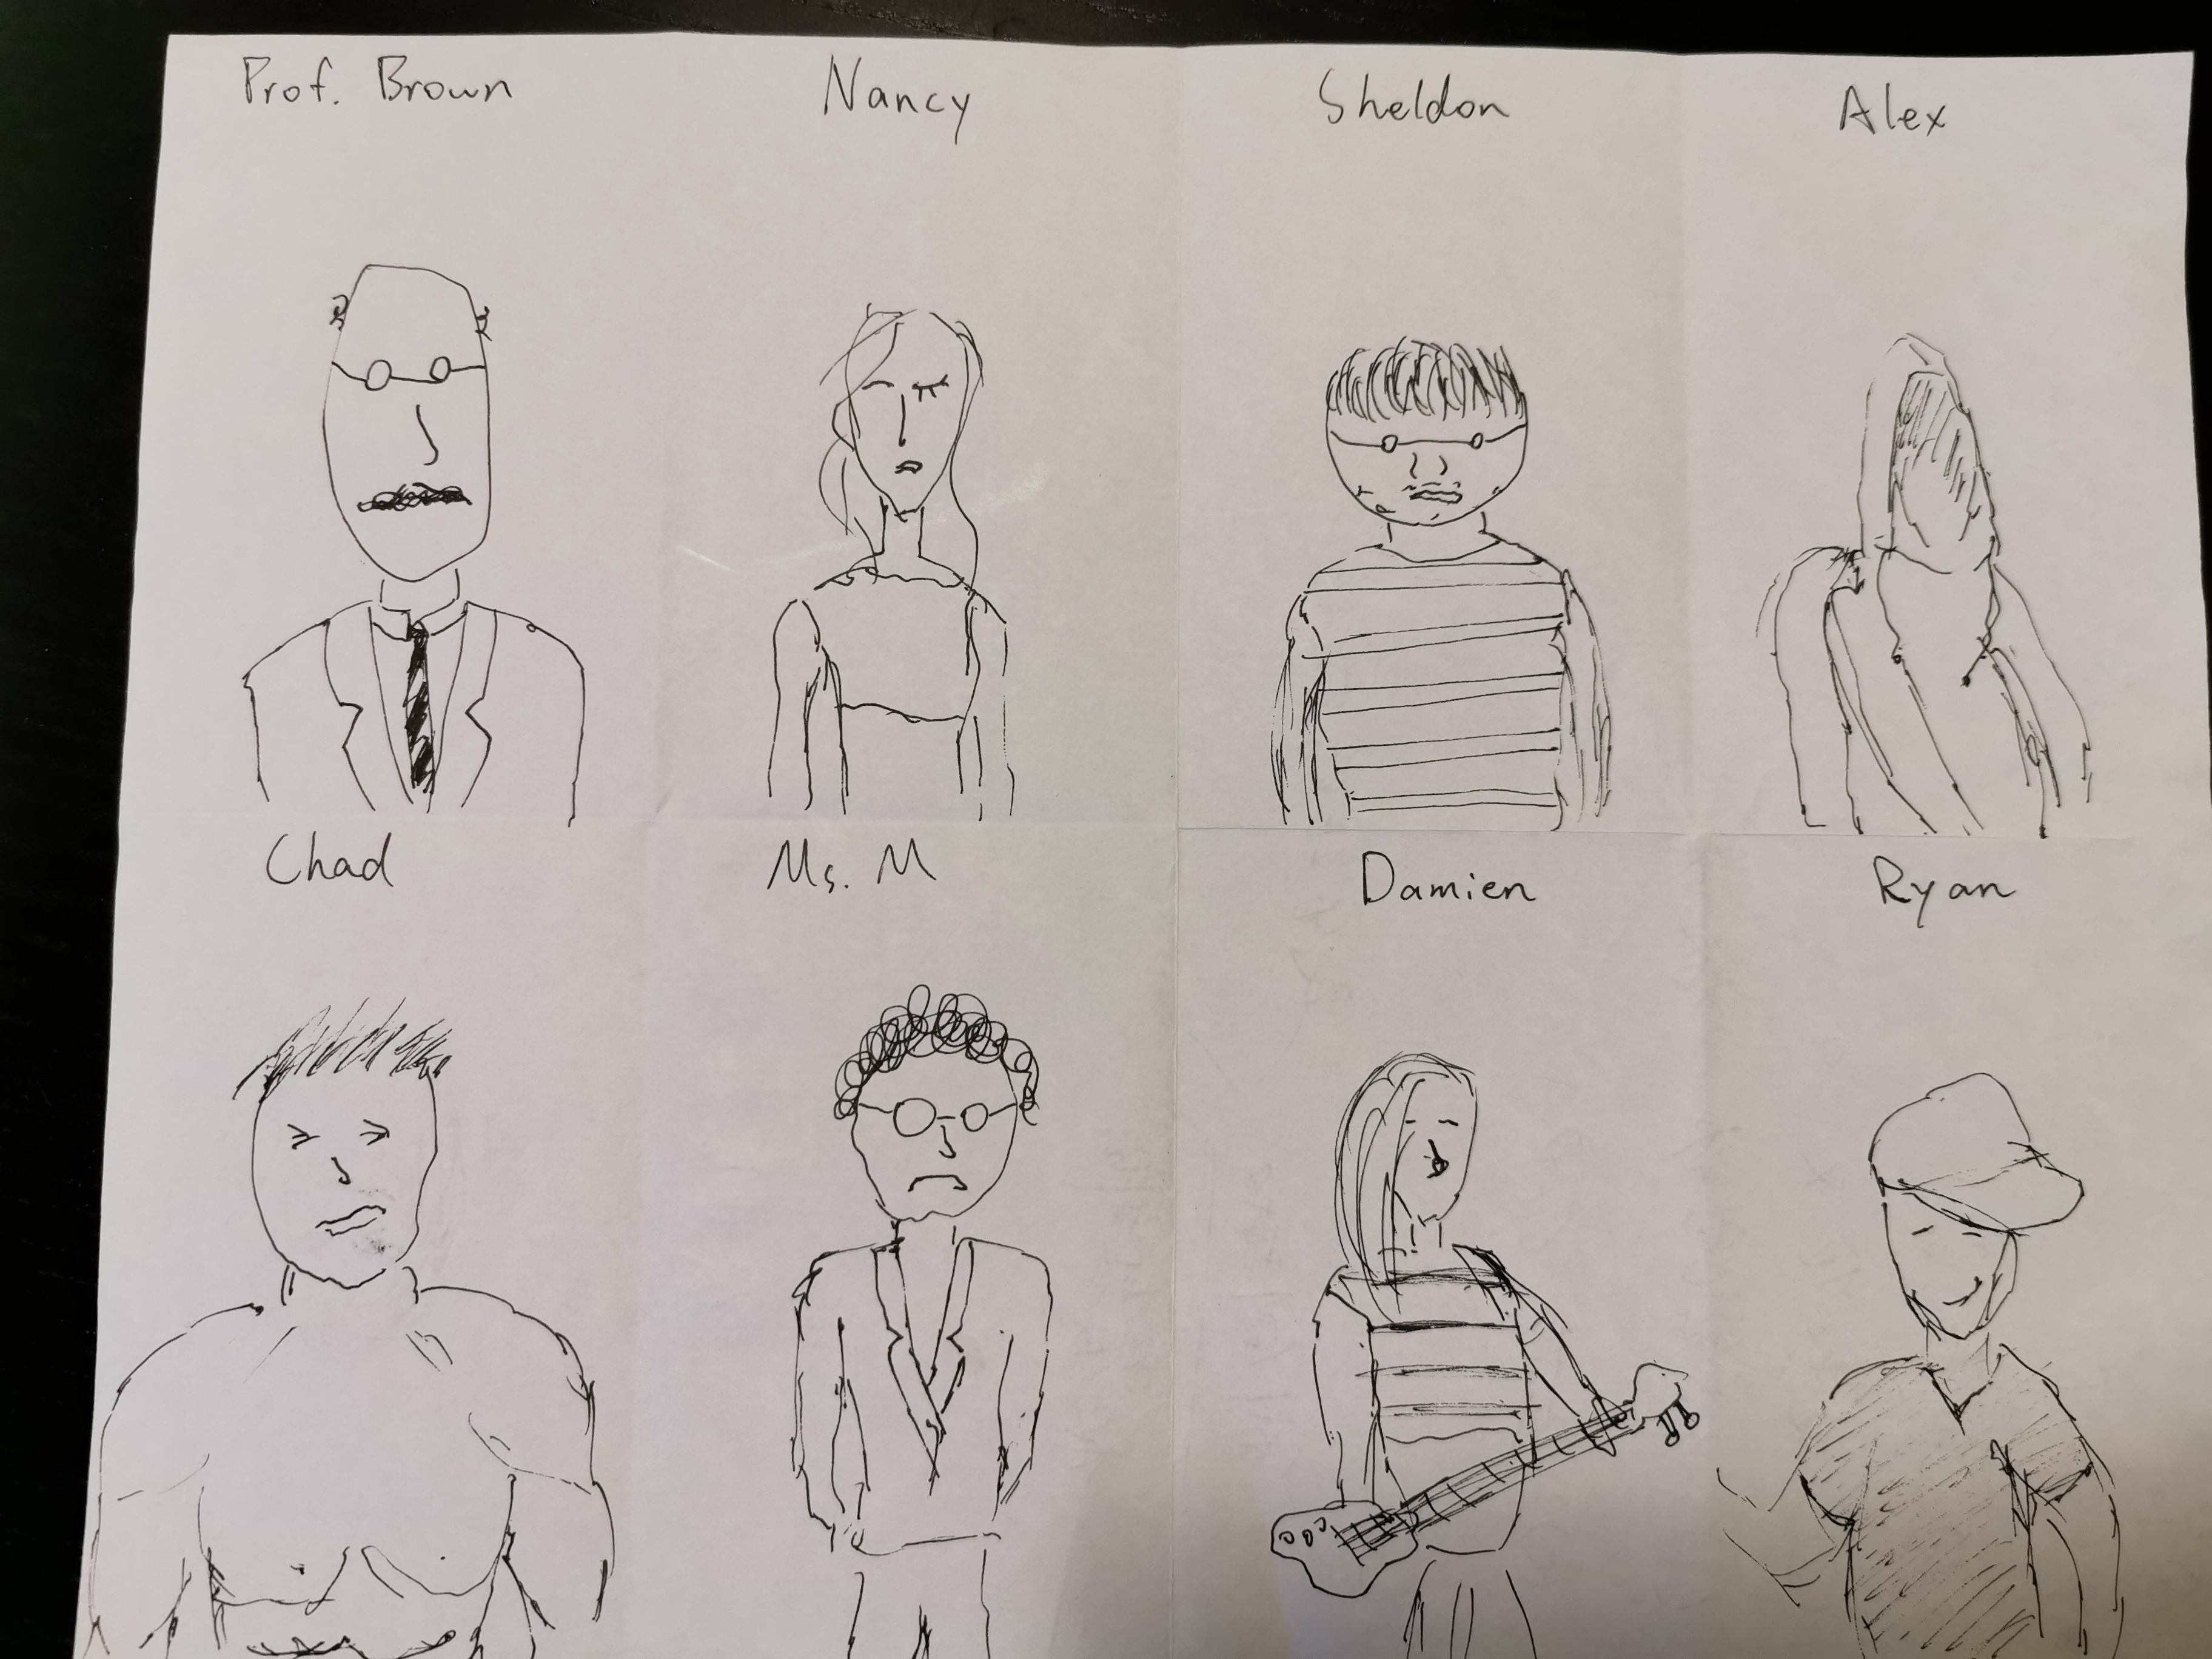 Prof. Brown
Nancy
Sheldon
Alex
Chad
Ms. M
Damien
Ryan